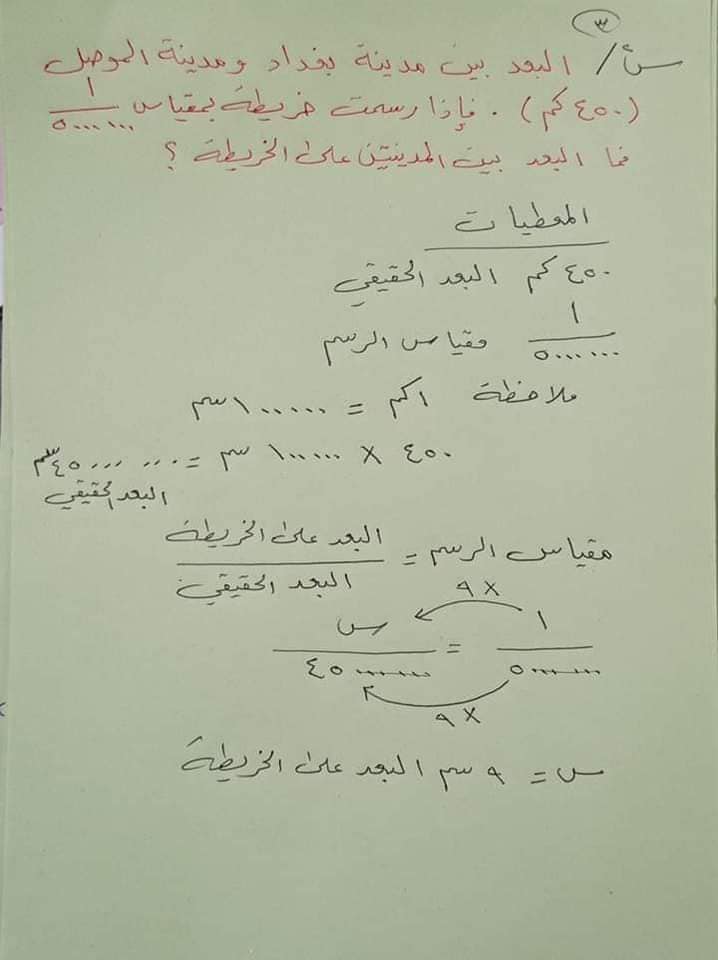 ٣
س٤/ البعد بين مدينة بغداد ومدينة الموصل
(٤٥٠كم) . فإذا رسمت خريطة بمقياس ١/٥٠٠٠٠٠٠
فما البعد بين المدينتين على الخريطة ؟
المعطيات
٤٥٠ كم البعد الحقيقي
١/٥٠٠٠٠٠٠ مقياس الرسم
ملاحظة ١كم = ١٠٠٠٠٠سم
٤٥٠ × ١٠٠٠٠٠ سم = ٤٥٠٠٠٠٠٠سم
البعد الحقيقي
مقياس الرسم = البعد على الخريطة/البعد الحقيقي
×٩
١/٥٠٠٠٠٠٠ = س/٤٥٠٠٠٠٠٠
×٩
س = ٩ سم البعد على الخريطة